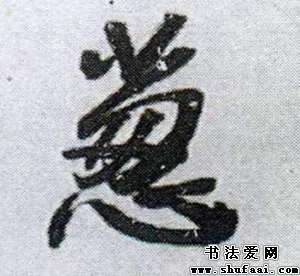 蒽
书法爱网
www.shufaai.com